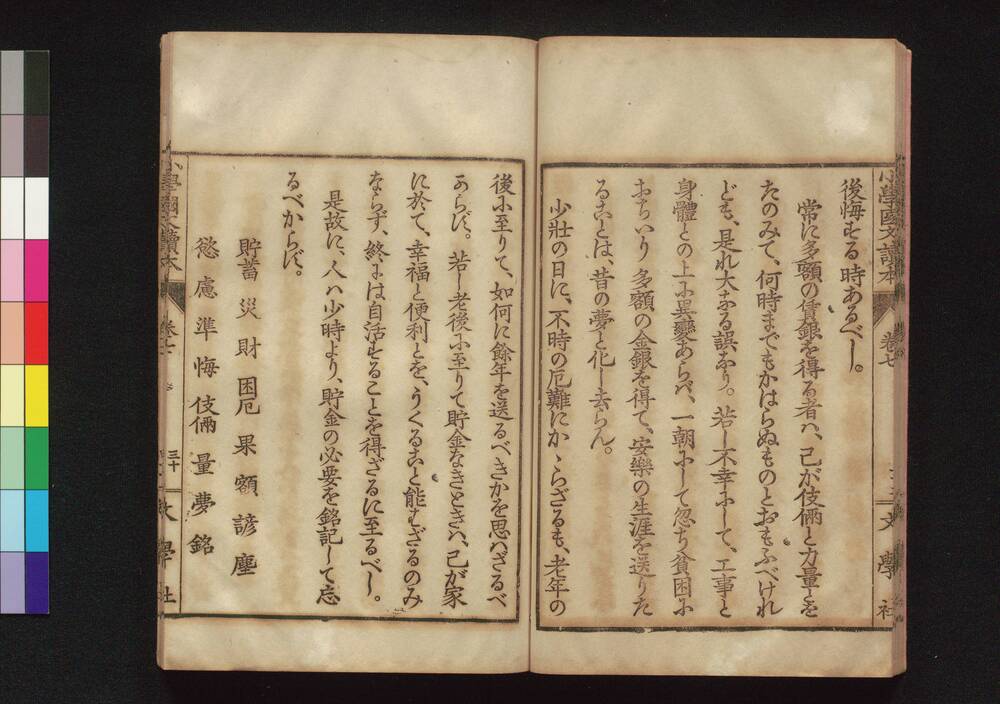 小學國文讀本
卷七
文學社
後悔する時あるべし。
常に多額の賃銀を得る者ハ、己が伎倆と力量とを
たのみて、何時までもかはらぬものとおもふべけれ
ども、是れ大なる誤なり。若し不幸にして、工事と
身體との上に異變あらバ、一朝にして忽ち貧困に
おちいり多額の金銀を得て、安樂の生涯を送りた
ることは、昔の夢と化し去らん。
少壯の日に、不時の厄難にかゝらざるも、老年の
後に至りて、如何に餘年を送るべきかを思ハざるべ
からず。若し老後に至りて貯金なきときハ、己が家
に於て、幸福と便利とを、うくること能はざるのみ
ならず、終には自活することを得ざるに至るべし。
是故に、人ハ少時より、貯金の必要を銘記して忘
るべからず。
貯蓄 災 財 困厄 果 額 諺 塵
慾 慮 準 悔 伎倆 量 夢 銘
小學國文讀本
卷七
三十
文學社